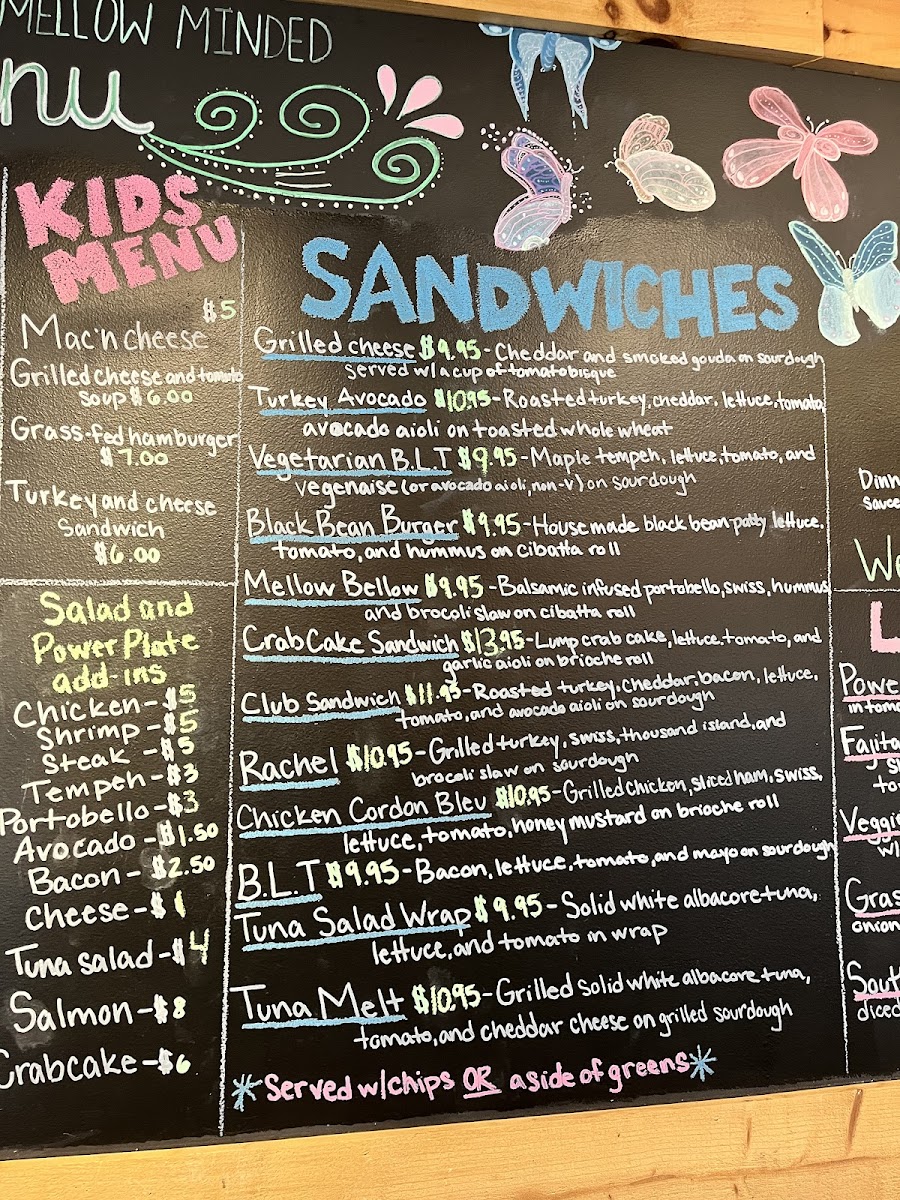 MELLOW MINDED
nu
KIDS
MENU
$5
Mac'n cheese
Grilled cheese and tomato
soup $6.00
Grass-fed hamburger
$7.00
Turkey and cheese
Sandwich
$6.00
Salad and
Power Plate
add-ins
Chicken-$5
Shrimp-$5
Steak-$5
Tempeh-$3
Portobello-$3
Avocado-$1.50
Bacon-$2.50
Cheese-$1
Tuna salad-$4
Salmon-$8
Crabcake-$6
SANDWICHES
Grilled cheese $9.95-Cheddar and smoked gouda on sourdough
served w/a cup of tomato bisque
Turkey Avocado $10.95-Roasted turkey, cheddar, lettuce, tomato,
avocado aioli on toasted whole wheat
Vegetarian B.L.T $9.95-Maple tempeh, lettuce, tomato, and
vegenaise (or avocado aioli, non-v) on sourdough
Black Bean Burger $9.95-House made black bean patty lettuce,
tomato, and hummus on cibatta roll
Mellow Bellow $9.95-Balsamic infused portobello, swiss, hummus
and brocoli slaw on cibatta roll
Crab Cake Sandwich $13.95-Lump crab cake, lettuce, tomato, and
garlic aioli on brioche roll
Club Sandwich $11.95-Roasted turkey, cheddar, bacon, lettuce,
tomato, and avocado aioli on sourdough
Rachel $10.95-Grilled turkey, swiss, thousand island, and
brocoli slaw on sourdough
Chicken Cordon Bleu $10.95-Grilled chicken, sliced ham, swiss,
lettuce, tomato, honey mustard on brioche roll
B.L.T $9.95-Bacon, lettuce, tomato, and mayo on sourdough
Tuna Salad Wrap $9.95-Solid white albacore tuna,
lettuce, and tomato in wrap
Tuna Melt $10.95-Grilled solid white albacore tuna,
tomato, and cheddar cheese on grilled sourdough
*Served w/chips OR a side of greens*
Dinn
sauce
We
L
Powe
in toma
Fajita
to
Veggi
w/
Gras
onion
Sout
diced